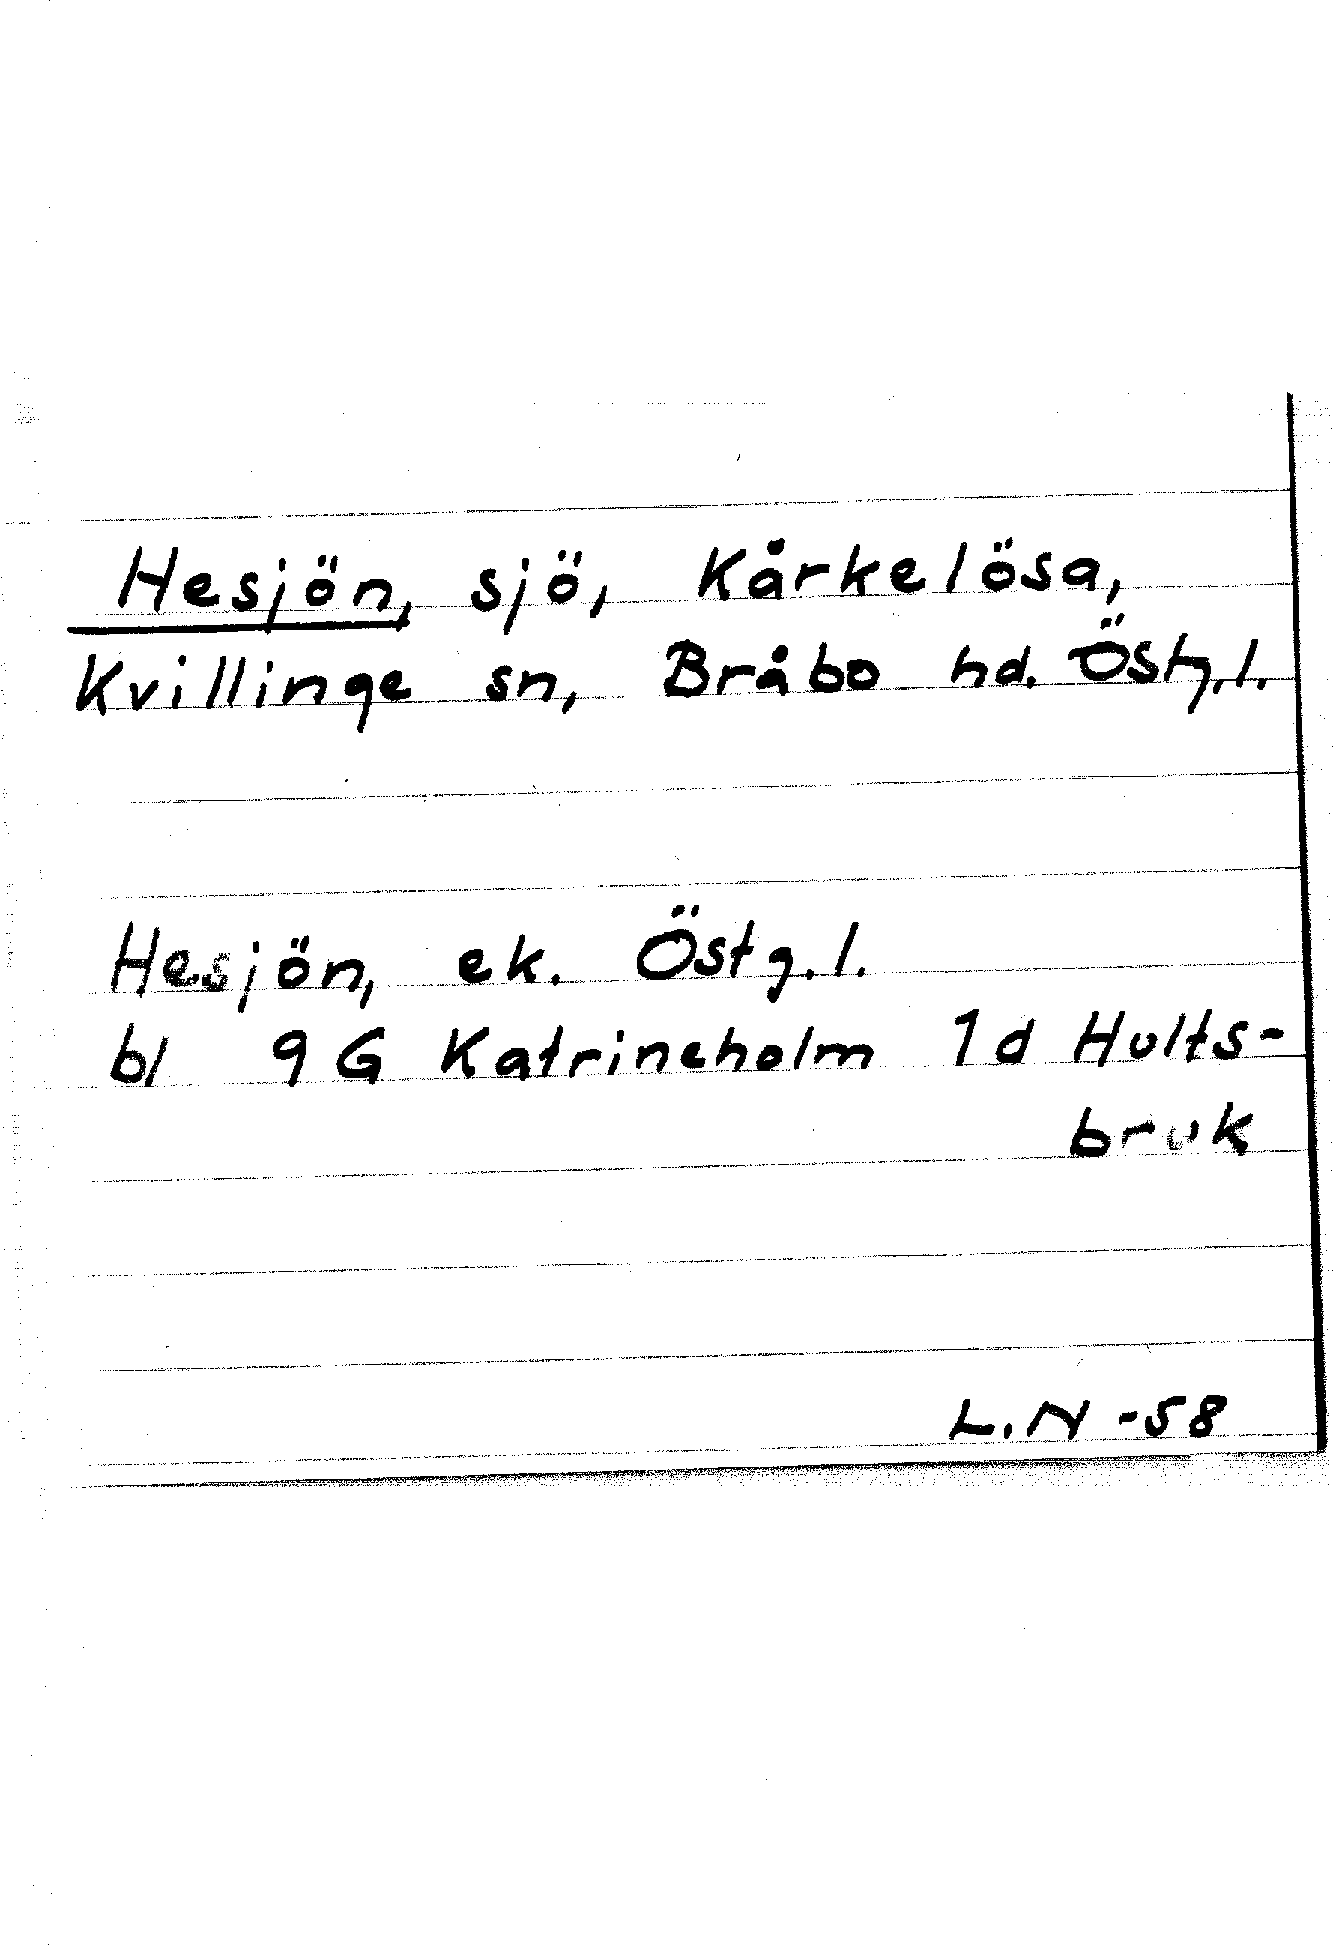 Hesjön, sjö, Kårkelösa,
Kvillinge sn, Bråbo hd. Östg.l.
Hesjön, ek. Östg.l.
bl 9G Katrineholm 1d Hults-
bruk
L.N -58